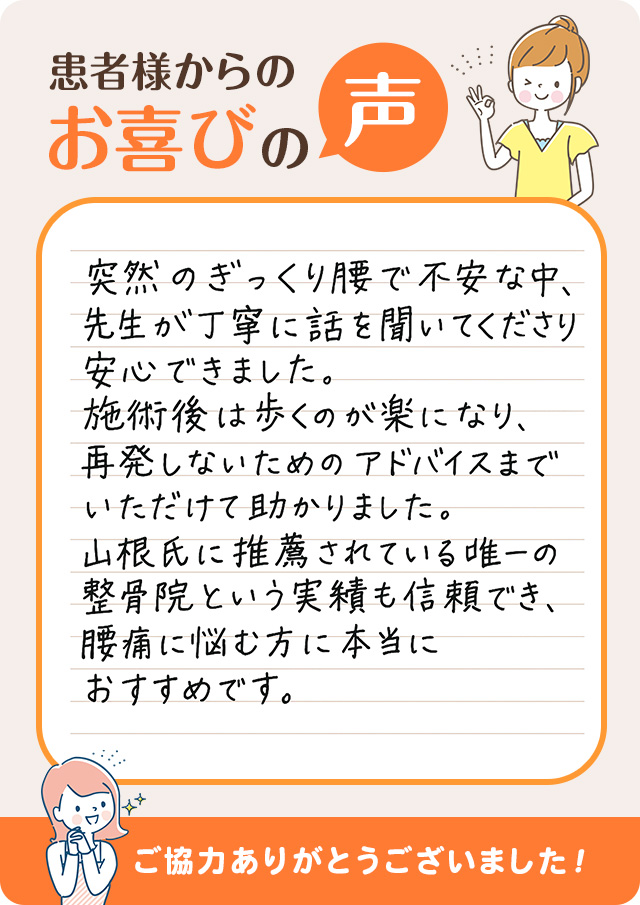 患者様からの
お喜びの声
突然のぎっくり腰で不安な中、
先生が丁寧に話を聞いてくださり
安心できました。
施術後は歩くのが楽になり、
再発しないためのアドバイスまで
いただけて助かりました。
山根氏に推薦されている唯一の
整骨院という実績も信頼でき、
腰痛に悩む方に本当に
おすすめです。
ご協力ありがとうございました！